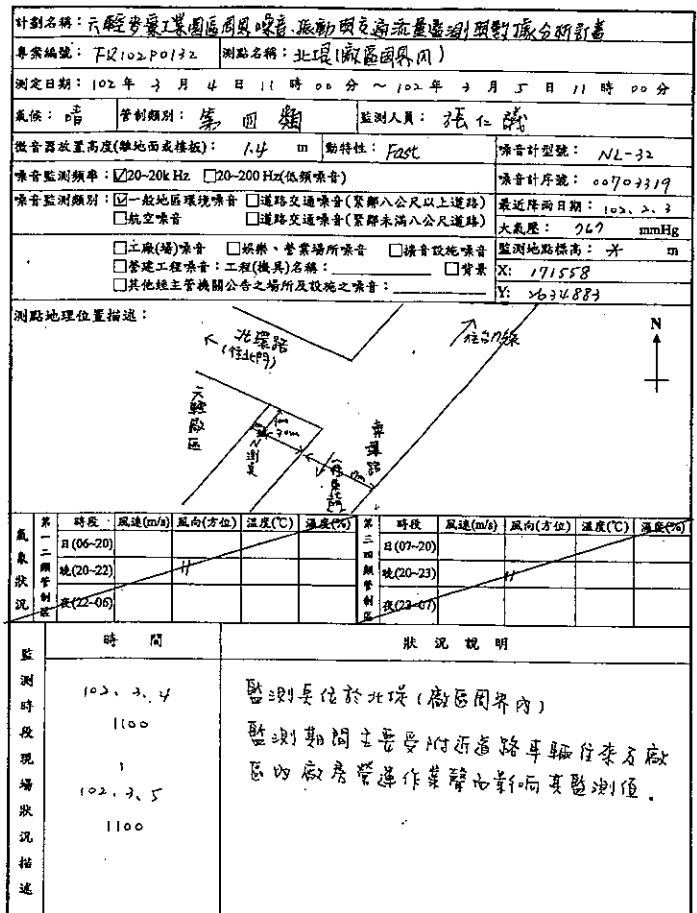 計劃名稱：六輕麥寮工業園區周界噪音、振動與交通流量監測與數據分析計畫
專案編號：FR102P0132 測點名稱：北堤(廠區周界內)
測定日期：102 年 3 月 4 日 11 時 00 分 ～ 102 年 3 月 5 日 11 時 00 分
氣候：晴 管制類別：第 四 類 監測人員：張仁議
微音器放置高度(離地面或樓板)：1.4 m 動特性：Fast 噪音計型號：NL-32
噪音監測頻率：☑20~20k Hz □20~200 Hz(低頻噪音) 噪音計序號：00703319
噪音監測類別：☑一般地區環境噪音 □道路交通噪音(緊鄰八公尺以上道路) 最近降雨日期：102.2.3
□航空噪音 □道路交通噪音(緊鄰未滿八公尺道路) 大氣壓：767 mmHg
□工廠(場)噪音 □娛樂、營業場所噪音 □擴音設施噪音 監測地點標高： m
□營建工程噪音：工程(機具)名稱： □背景 X: 171558
□其他經主管機關公告之場所及設施之噪音： Y: 2634883
測點地理位置描述：
北環路
←(往北門)
往台17線
N
六輕廠區
測點
30m
專用路
氣象狀況
第一二類管制區 時段 風速(m/s) 風向(方位) 溫度(℃) 濕度(%) 第三四類管制區 時段 風速(m/s) 風向(方位) 溫度(℃) 濕度(%)
日(06~20) 日(07~20)
晚(20~22) 晚(20~23)
夜(22~06) 夜(23~07)
監測時段現場狀況描述
時 間 狀 況 說 明
102.3.4 監測點位於北堤(廠區周界內)
1100 監測期間主要受附近道路車輛往來及廠
102.3.5 區內廠房營運作業聲而影响其監測值.
1100